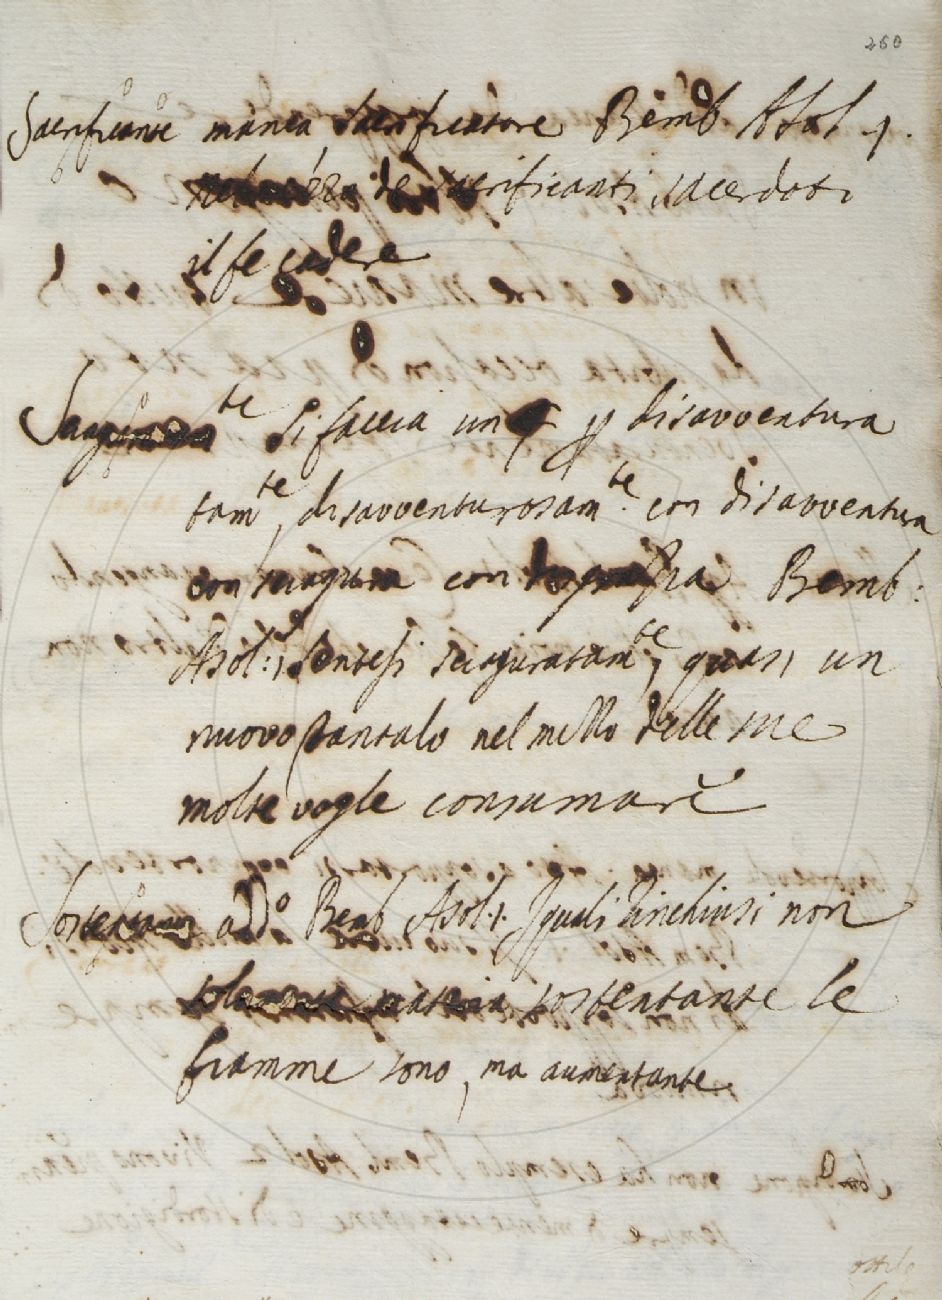 260
Sacrificante manca sacrificatore Bemb Asol 1.
de sacrificanti sacerdoti
il fe cadere
te si faccia un disavventura
tam.te, disavventurosam.te con disavventura
con sciagura con Bemb:
Asol: 1 sentesi sciaguratam.te, quasi un
nuovo Tantalo nel mezzo delle sue
molte vogle consumare
add.o Bemb Asol 1. I quali rinchiusi non
solamente materia sostentante le
fiamme sono, ma aumentante